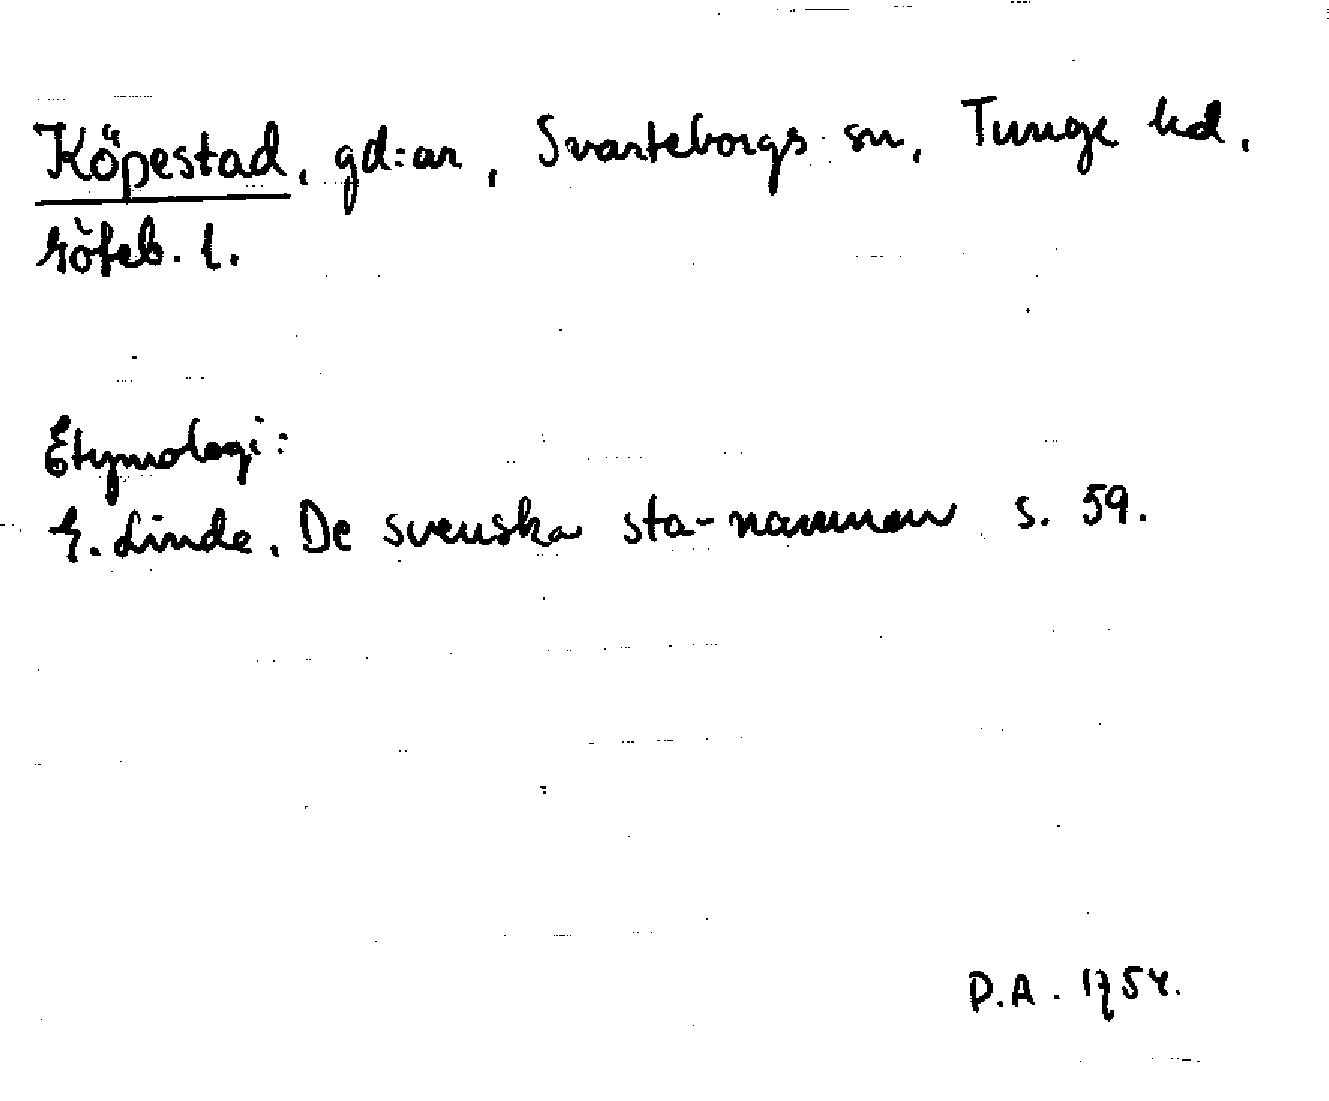 Köpestad, gd:ar, Svarteborgs sn, Tunge hd,
Göteb. l.
Etymologi:
G. Linde, De svenska sta-namnen s. 59.
P.A. 1954.